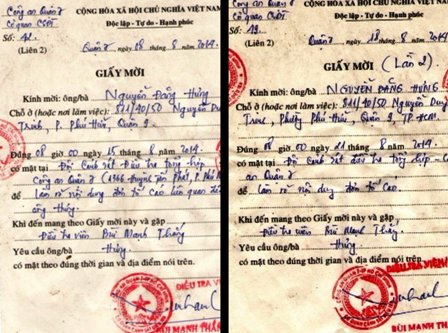 Công an Quận 7
Cơ quan CSĐT
CỘNG HÒA XÃ HỘI CHỦ NGHĨA VIỆT NAM
Độc lập - Tự do - Hạnh phúc
Số: 42
(Liên 2)
Quận 7, ngày 08 tháng 8 năm 2014
GIẤY MỜI
Kính mời: ông/bà Nguyễn Đăng Hưng
Chỗ ở (hoặc nơi làm việc): 511/40/50 Nguyễn Duy
Trinh, P. Phú Hữu, Quận 9.
Đúng 08 giờ 00 ngày 15 tháng 8 năm 2014.
có mặt tại Đội Cảnh sát Điều tra tổng hợp
Công an Quận 7 (1366 Huỳnh Tấn Phát, P. Phú
để Làm rõ nội dung đơn tố cáo liên quan đến
ông Hưng
Khi đến mang theo Giấy Mời này và gặp
Điều tra viên Bùi Mạnh Thắng
Yêu cầu ông/bà Hưng
có mặt theo đúng thời gian và địa điểm nói trên.
ĐIỀU TRA VIÊN
BÙI MẠNH
Công an Quận 7
Cơ quan CSĐT
CỘNG HÒA XÃ HỘI CHỦ NGHĨA VIỆT
Độc lập - Tự do - Hạnh phúc
Số:
(Liên 2)
Quận 7, ngày 18 tháng 8 năm 2014
GIẤY MỜI (Lần 2)
Kính mời: ông/bà NGUYỄN ĐĂNG HƯNG
Chỗ ở (hoặc nơi làm việc): 511/40/50 Nguyễn Duy
Trinh, Phường Phú Hữu, Quận 9, TP.HCM.
Đúng 08 giờ 00 ngày 21 tháng 8 năm 2014.
có mặt tại Đội Cảnh sát điều tra tổng hợp
an Quận 7
để Làm rõ nội dung đơn tố cáo.
Khi đến mang theo Giấy Mời này và gặp
Điều tra viên Bùi Mạnh Thắng
Yêu cầu ông/bà Hưng
có mặt theo đúng thời gian và địa điểm nói trên.
ĐIỀU TRA VIÊN
BÙI MẠNH THẮNG